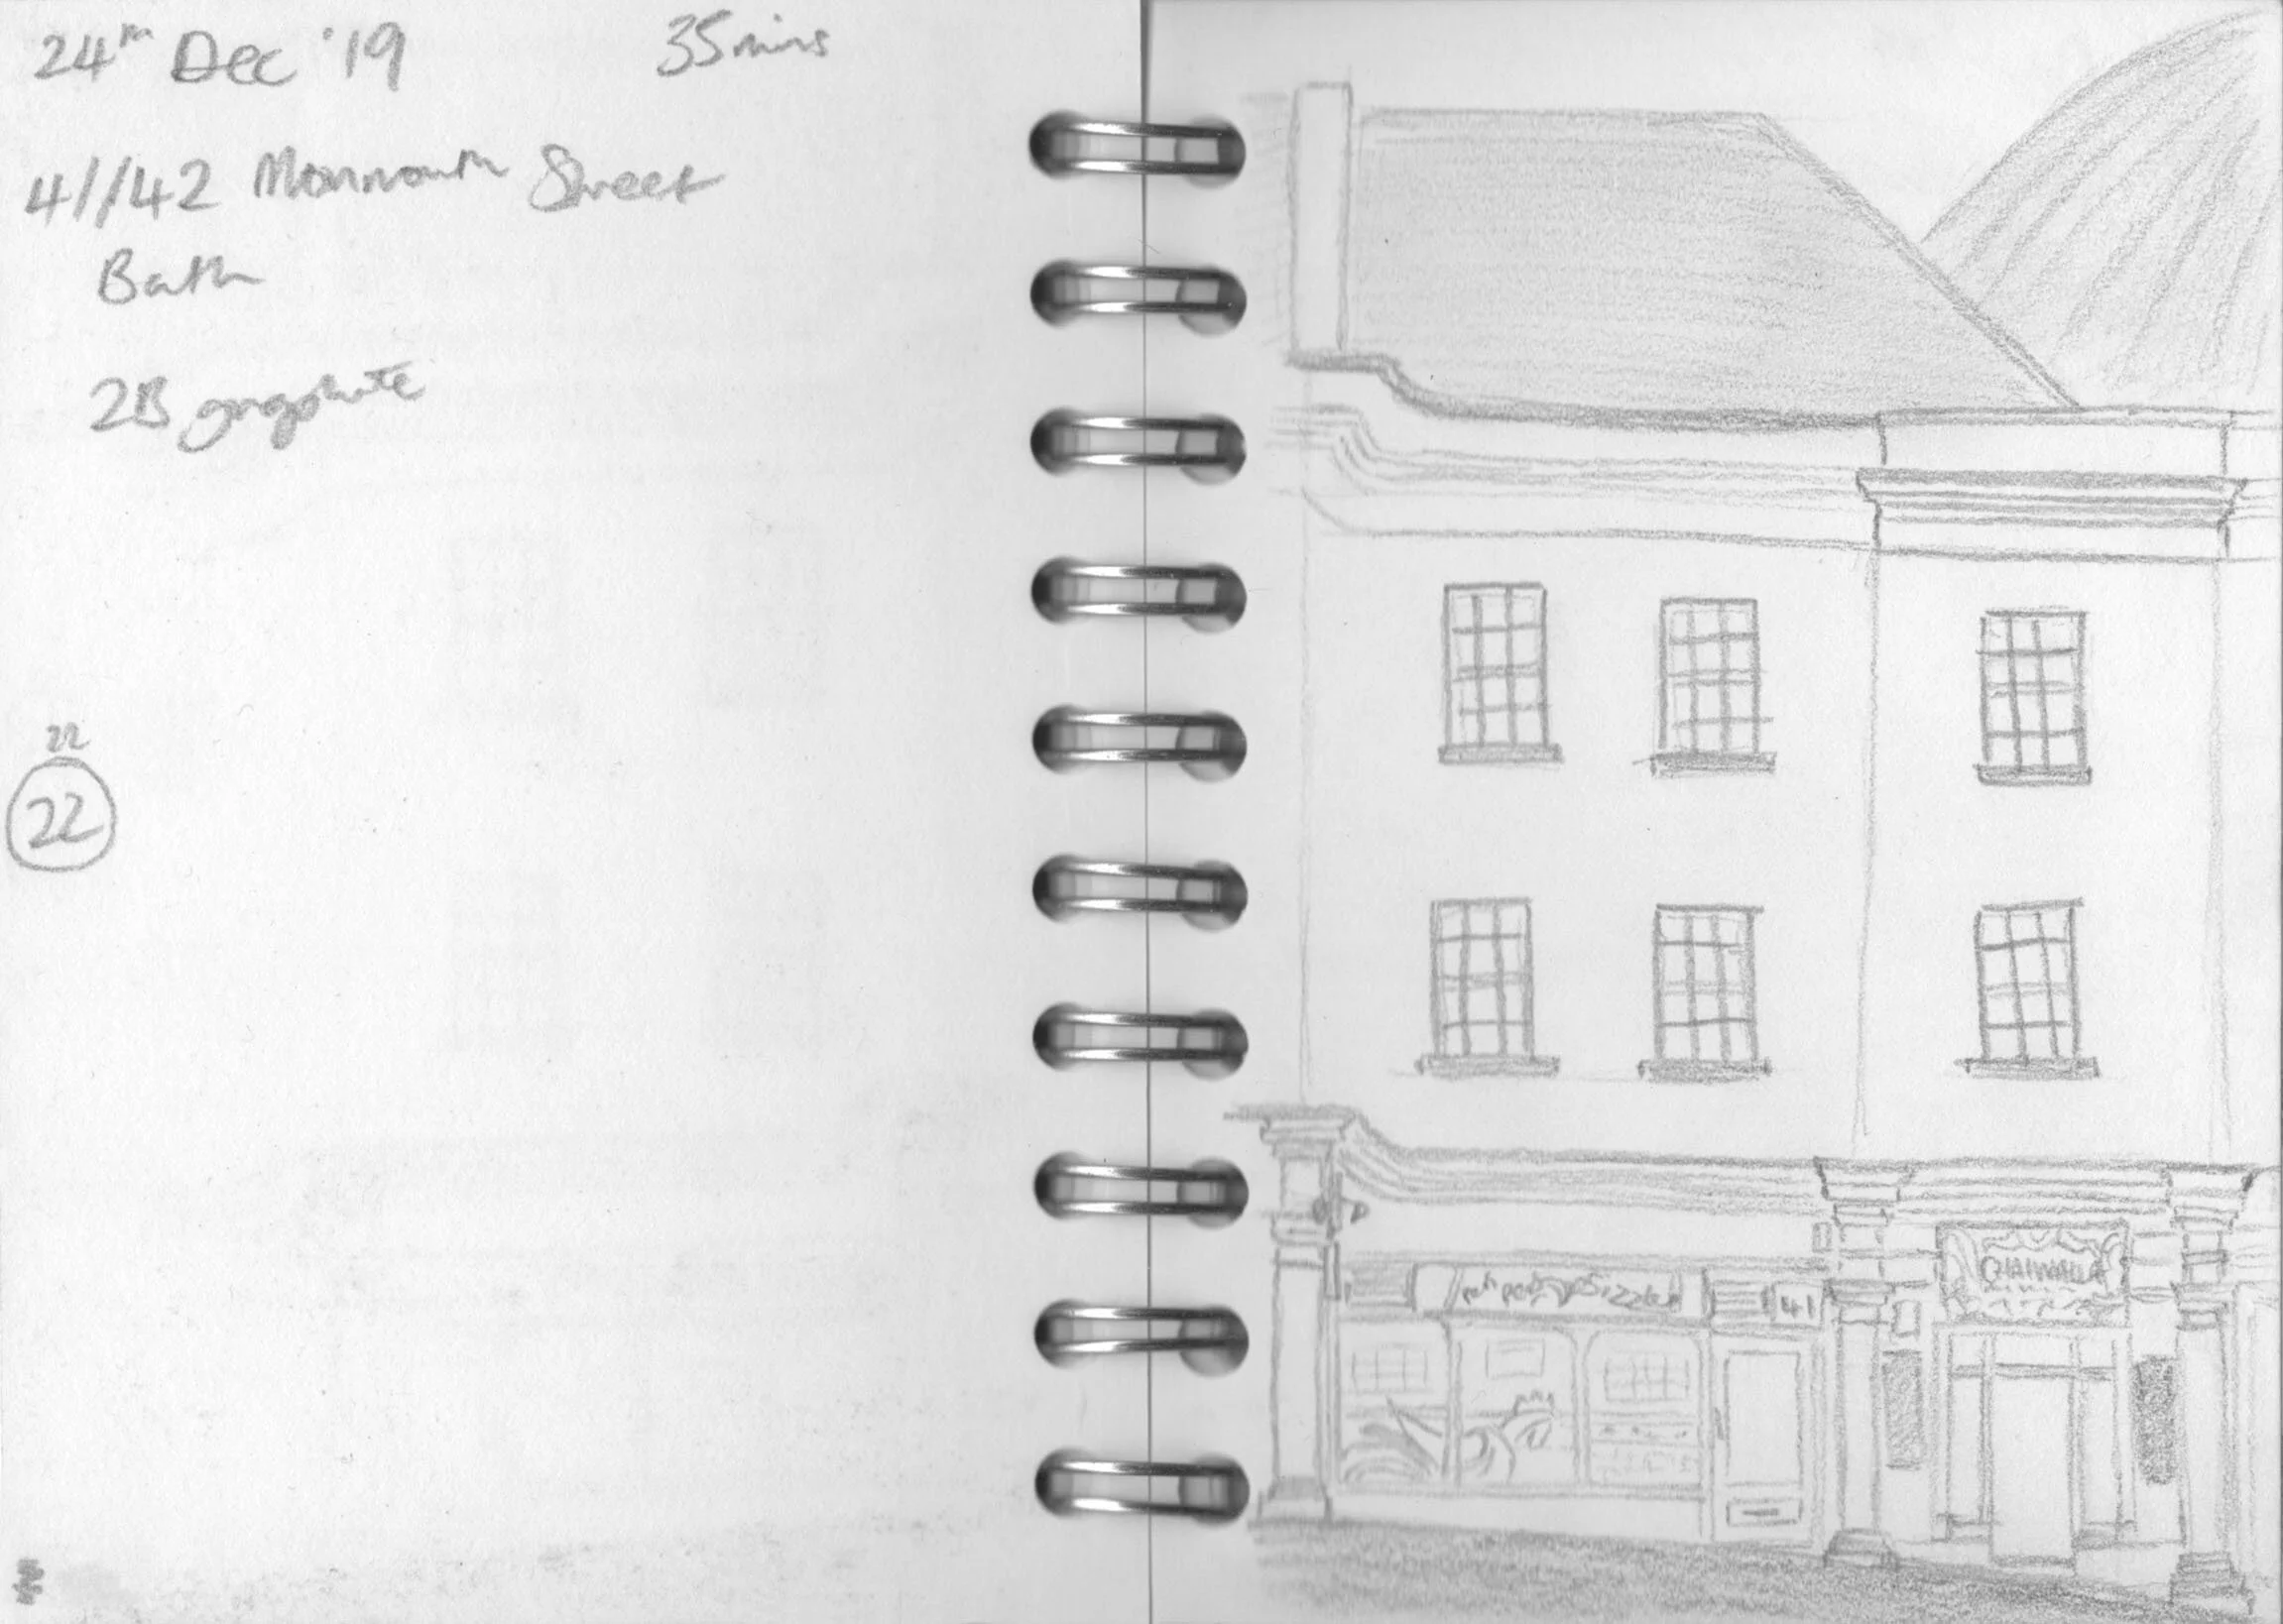 24th Dec '19 35mins
41/42 Monmouth Street
Bath
2B graphite
22
22
41
CHAIWALLA